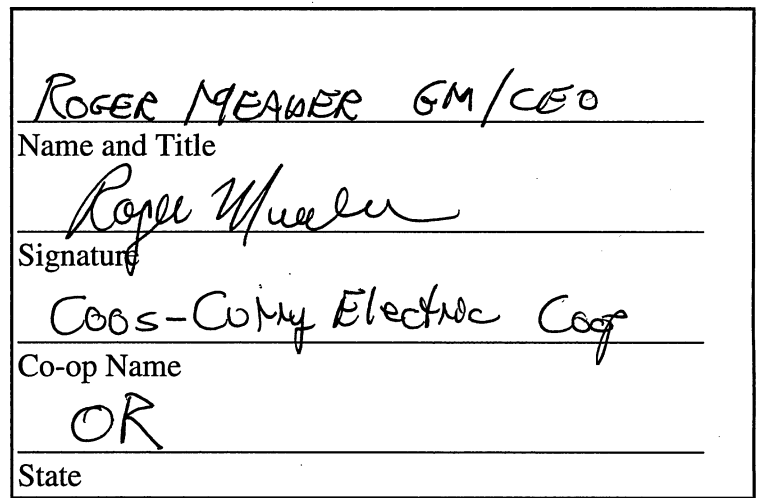 ROGER MEADER GM/CEO
Name and Title
Roger Meader
Signature
Coos-Curry Electric Coop
Co-op Name
OR
State